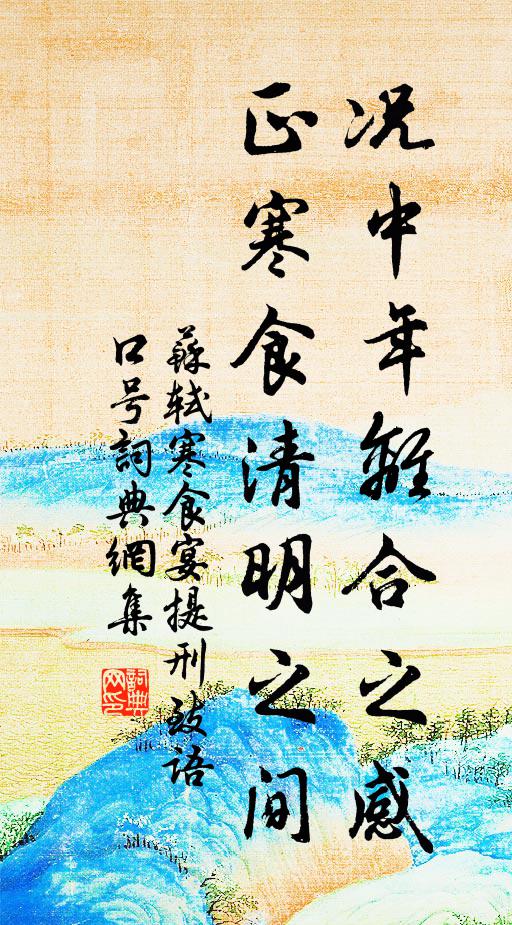 况中年離合之感
正寒食清明之间
蘇轼寒食宴提刑致语
口号詞典網集
詞典
网印